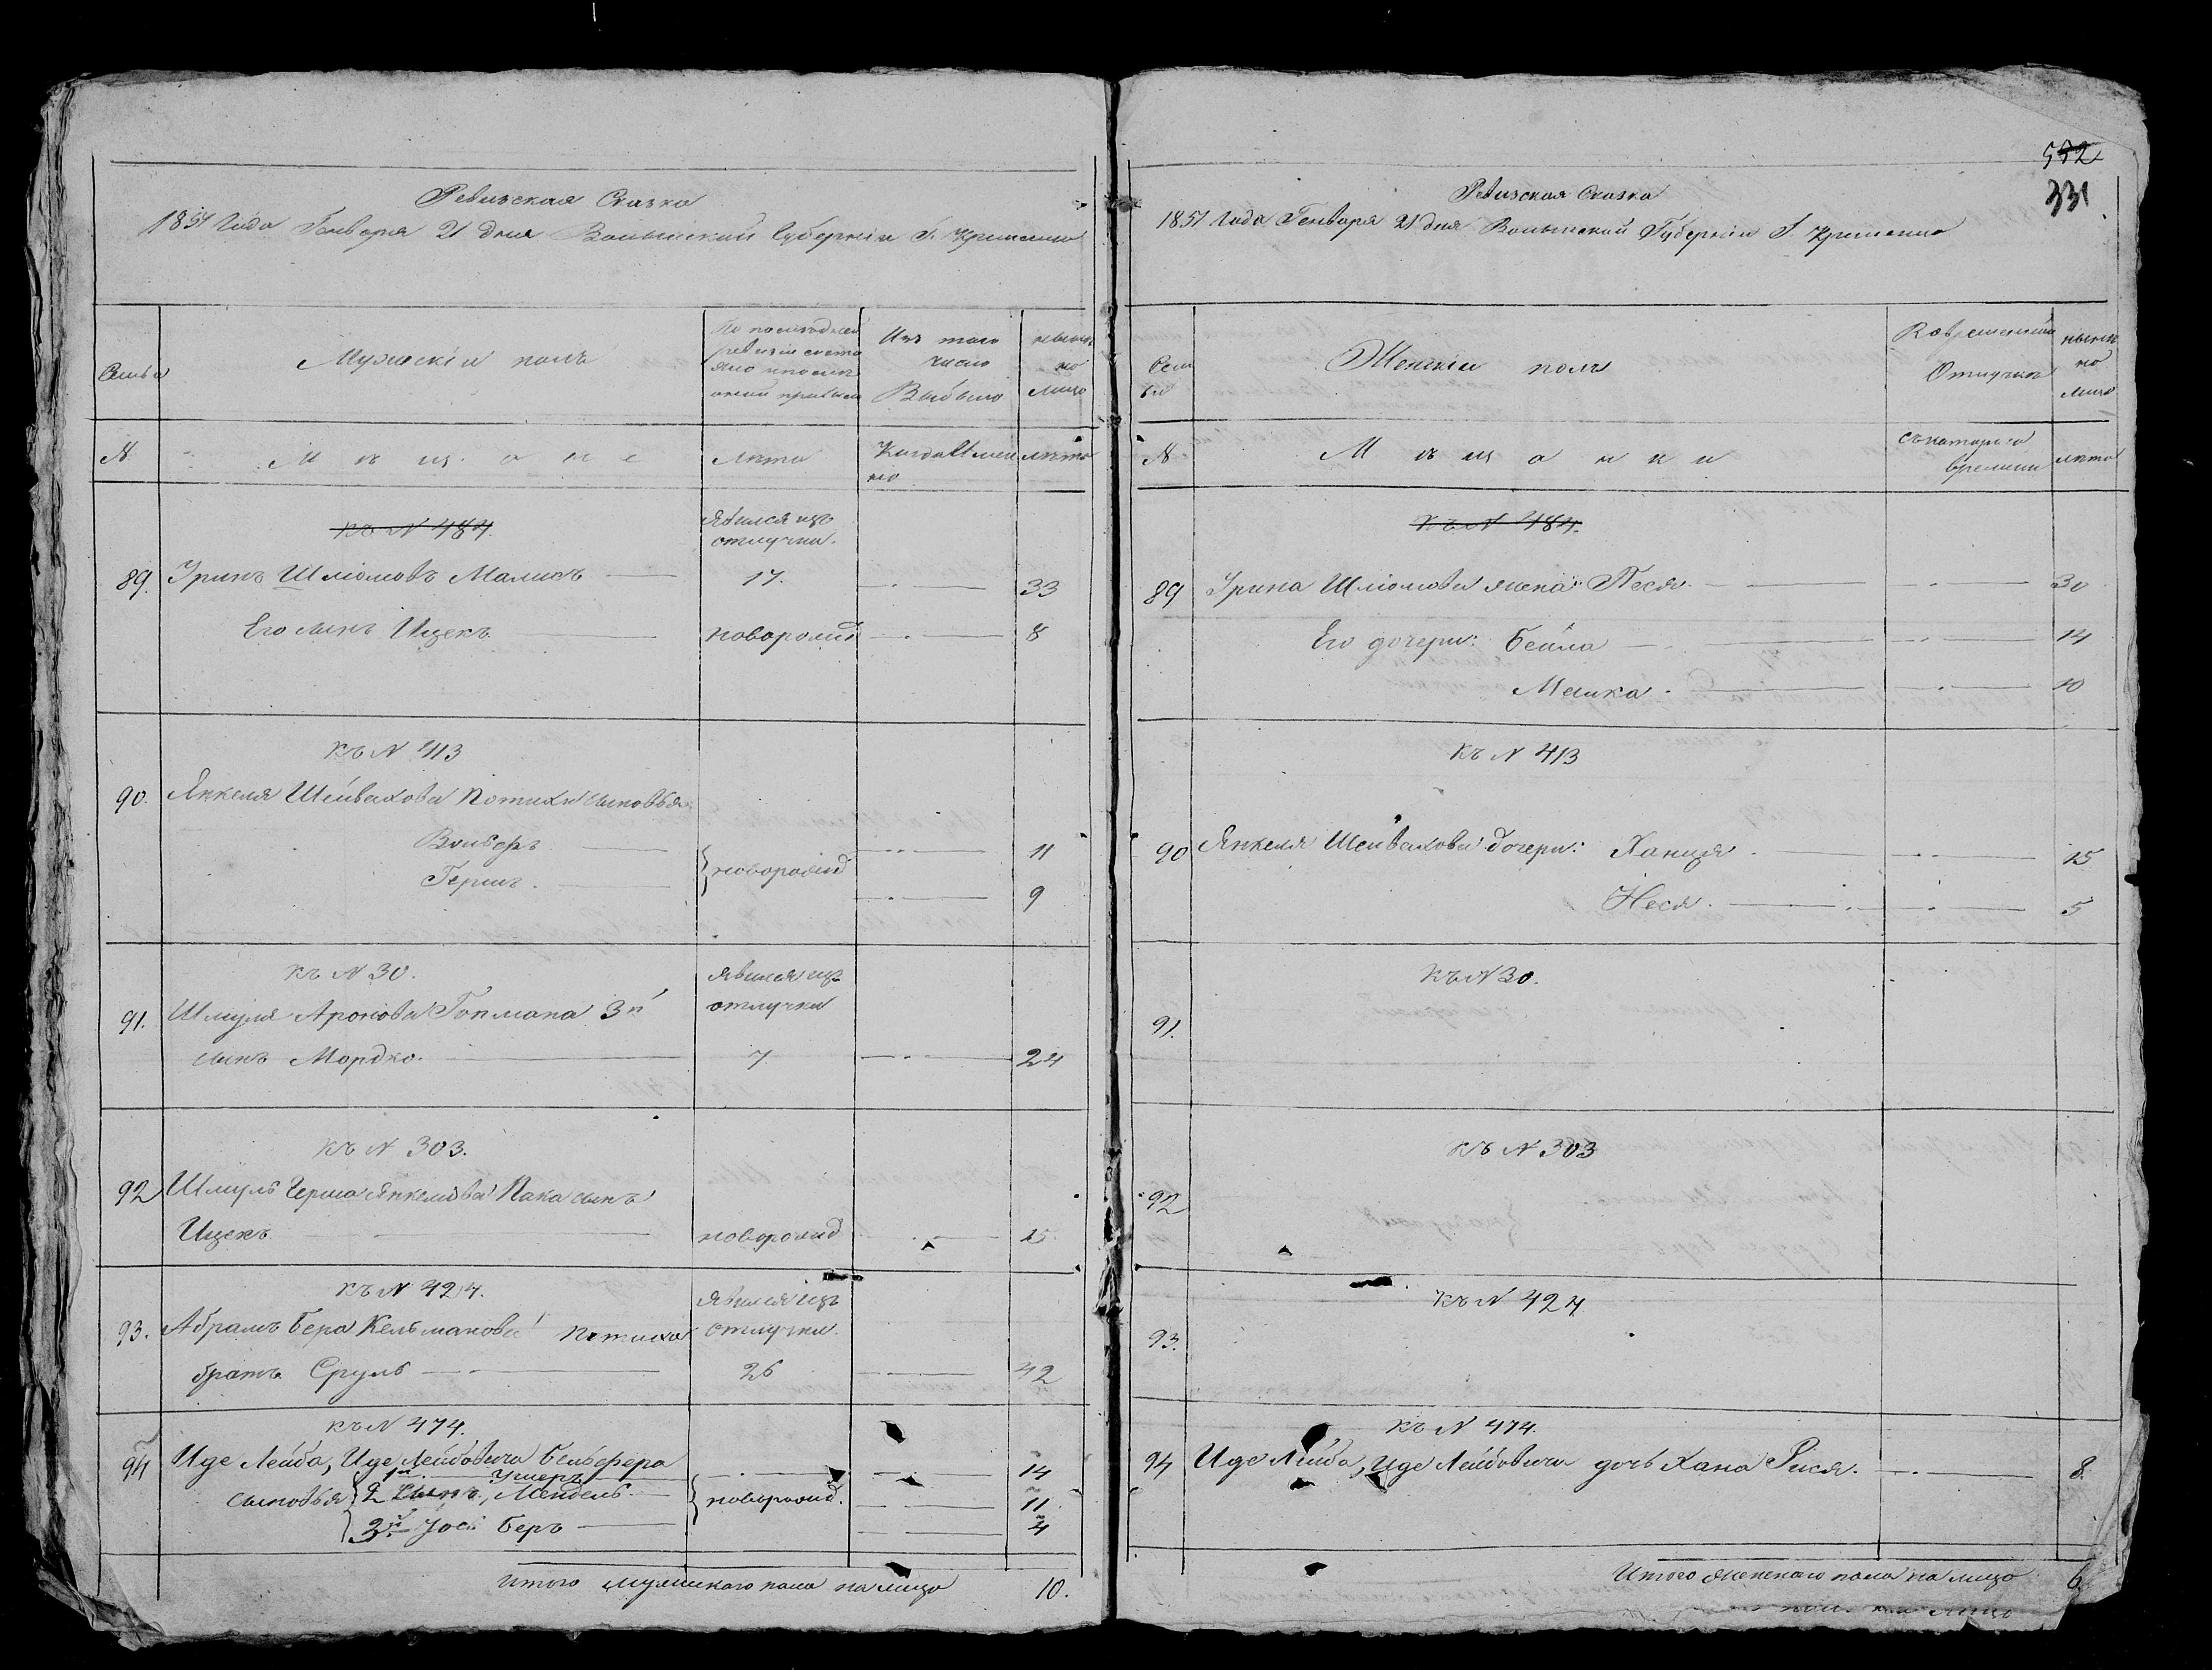 Ревизская Сказка
1851 Года Генваря 21 дня Волынской Губернiи Г. Кременца
Семьи
Мужескiй полъ
По последней
ревизiи состо
яло и после
оной прибыло
Изъ того
число
Выбыло
ныне
на
лицо
№
М ѣ щ а н е
лѣта
Когда Имен
но
лѣта
къ № 484.
явился изъ
отлучки.
89. Сруль Шліомовъ Маликъ 17. 33
Его сынъ Ицекъ новорожд 8
къ № 413
90. Янкеля Шейваховы Потихи сыновья
Вольфъ 11
новорожд
Гершъ. 9
къ № 30.
явился изъ
отлучки
91. Шмуля Аронова Гопмана 3й
сынъ Мордко. 7 24
къ № 303.
92 Шмуль Герша Янкелёва Пака сынъ
Ицекъ новорожд 15
къ № 424.
явился изъ
93. Абрамъ Бера Кельманова Потиха отлучки.
братъ Сруль 26 42
къ № 474.
94 Иде Лейба, Иде Лейбовича Бельфера
1й Ушеръ 14
сыновья 2 Сынъ, Мендель новорожд. 11
3й Іосъ Беръ 4
Итого мужескаго пола на лицо 10.
552
331
Ревизская Сказка
1851 Года Генваря 21 дня Волынской Губернiи Г. Кременца
Семьи
Женскiй полъ
Во временной
Отлучке
ныне
на
лицо
№
М ѣ щ а н к и
съ котораго
времени
лѣта
къ № 484.
89 Сруля Шліомова жена Песя. 30
Его дочери: Бейла 14
Малка. 10
къ № 413
90 Янкеля Шейвахова дочери: Ханця 15
Неся. 5
къ № 30.
91.
къ № 303
92
къ № 424
93.
къ № 474.
94 Иде Лейба, Иде Лейбовича дочь Хана Рися. 8.
Итого женскаго пола на лицо 6